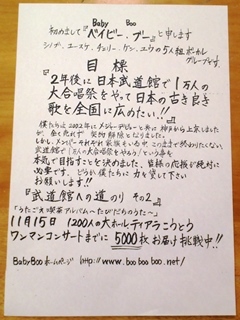 Baby Boo
初めまして『ベイビー・ブー』と申します
シノブ・ユースケ・チェリー・ケン・ユウの5人組ボーカルグループです。
目標
『2年後に日本武道館で1万人の
大合唱祭をやって日本の古き良き
歌を全国に広めたい!!』
僕たちは2002年にメジャーデビューと共に神戸から上京しましたが
全く売れず 契約解除となりました。
しかし、メンバーそれぞれ家族もいる中このままで終わりたくない、
武道館で「1万人の大合唱祭をやろう」という夢を
本気で目指すことを決めました。皆様の応援が絶対に
必要です。どうか僕たちに力を貸して下さい
お願いします!!
『武道館への道のり その2』
「うたごえ喫茶アルバム〜たびだちのうた〜」
11月15日 1200人の大ホールティアラこうとう
ワンマンコンサートまでに 5000枚お届け挑戦中!!
BabyBooホームページ http://www.boobooboo.net/